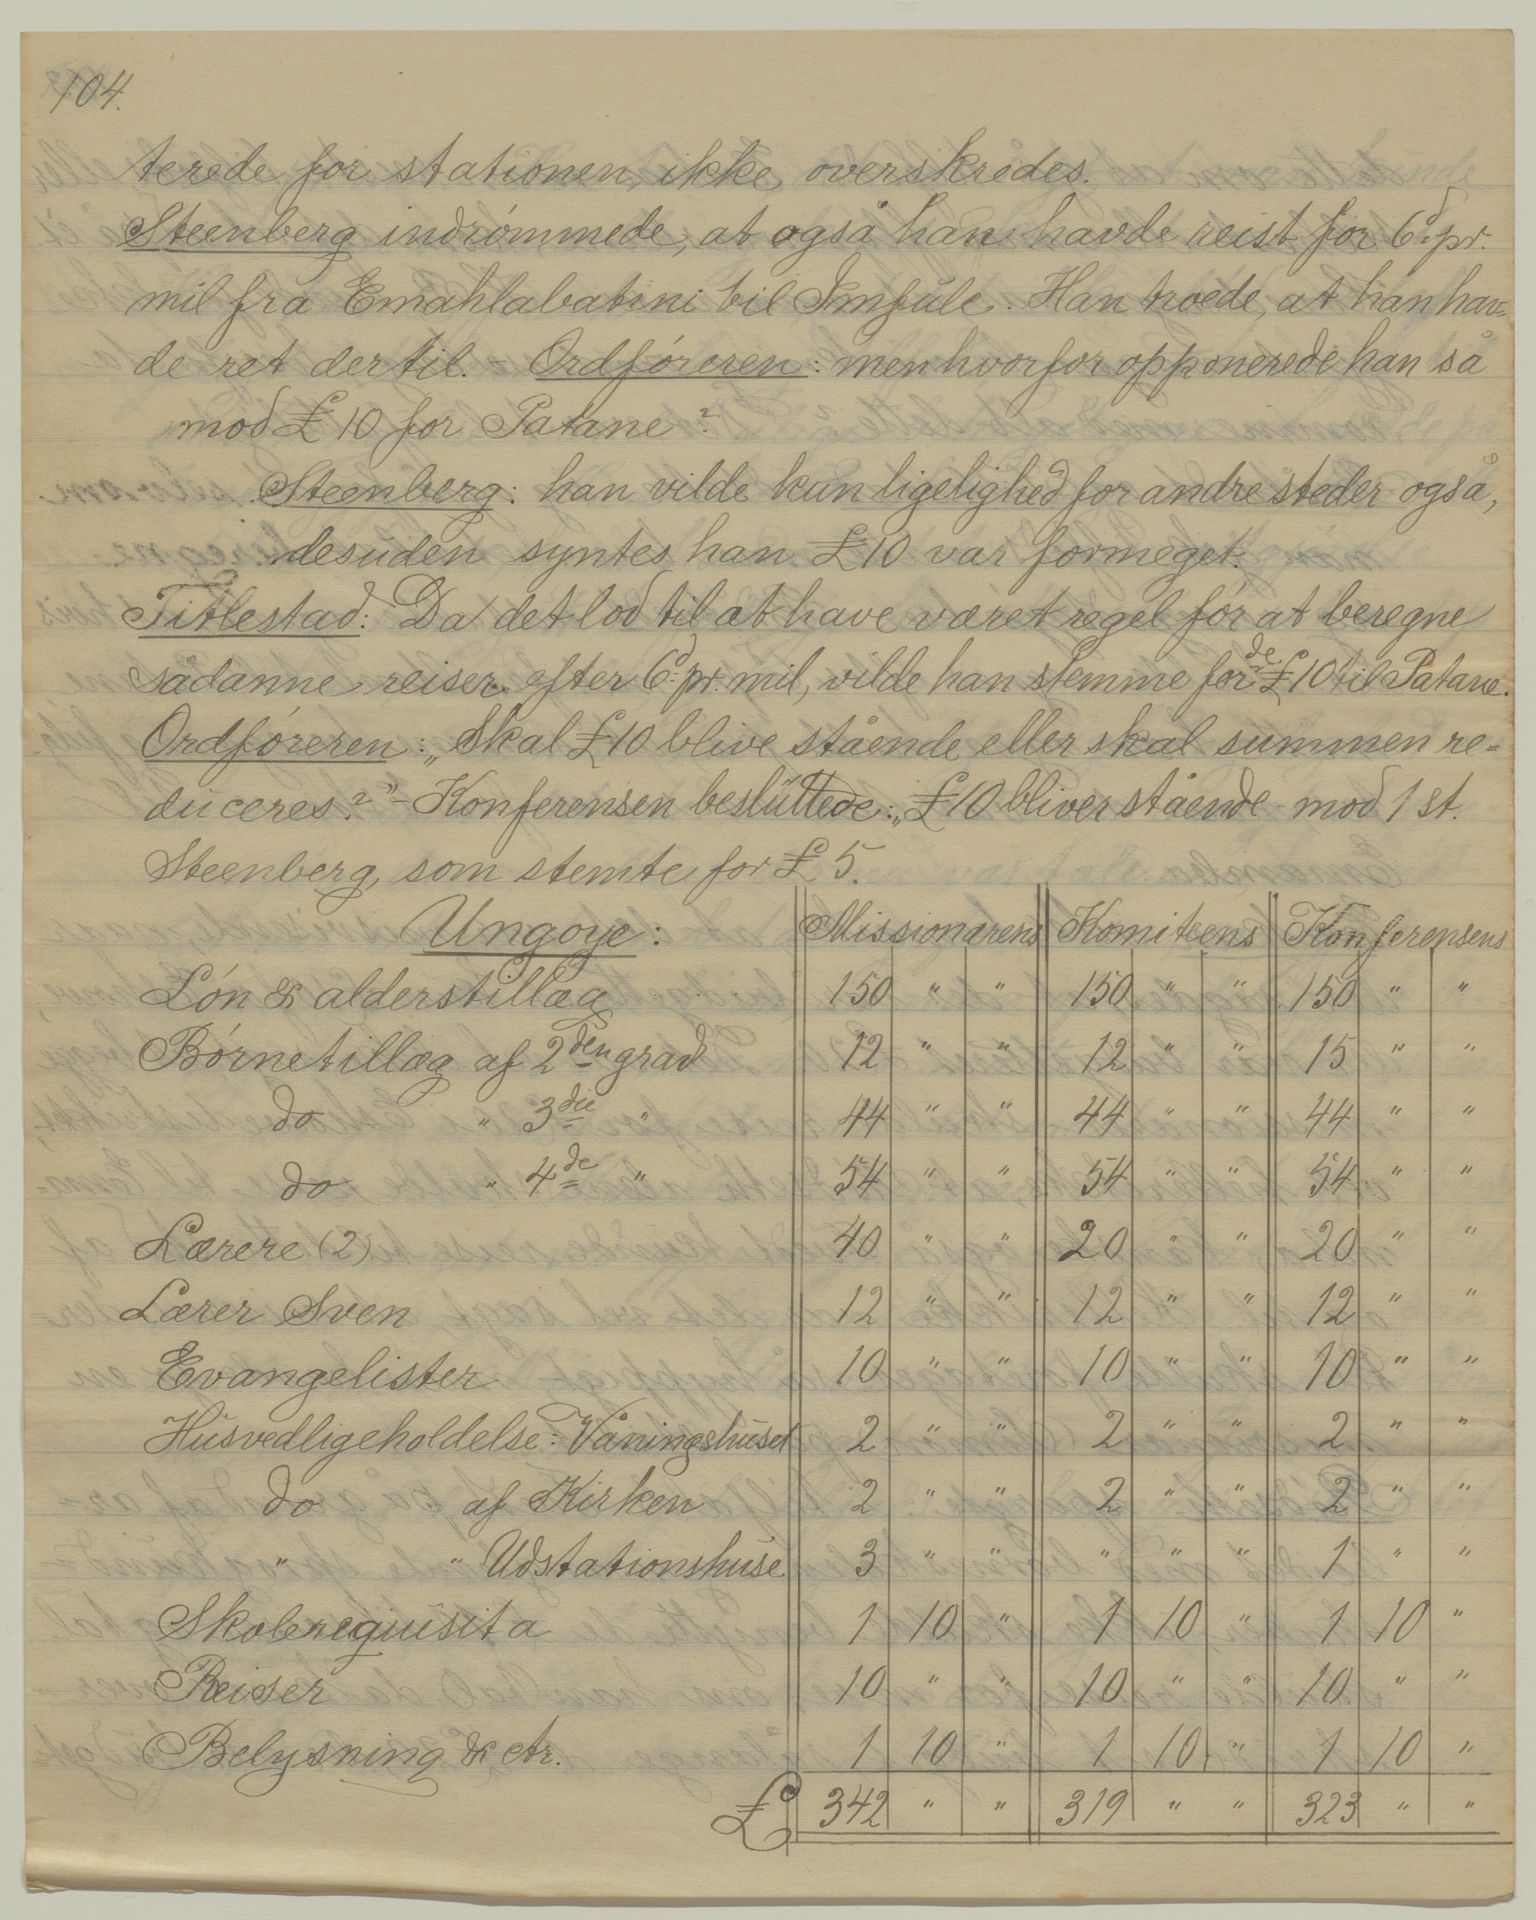 104.
terede for stationen, ikke overskredes.
Steenberg indrömmede, at også han havde reist for 6d. pr.
mil fra Emahlabatini til Imfule. Han troede, at han hav=
de ret dertil. - Ordföreren: men hvorfor opponerede han så
mod £ 10 for Patane?
Steenberg: han vilde kun ligelighed for andre steder også,
desuden syntes han £10 var formeget.
Titlestad: Da det lod til at have været regel för at beregne
sådanne reiser efter 6d. pr. mil, vilde han stemme for de £10 til Patane.
Ordföreren: „Skal £10 blive stående eller skal summen re=
duceres?" - Konferensen besluttede: „£10 bliver stående mod 1 st.
Steenberg, som stemte for £ 5.
Ungoye: Missionærens Komiteens Konferensens
Lón & alderstillæg 150 " " 150 " " 150 " "
Börnetillæg af 2den grad 12 " " 12 " " 15 " "
do " 3die " 44 " " 44 " " 44 " "
do " 4de " 54 " " 54 " " 54 " "
Lærere (2) 40 " " 20 " " 20 " "
Lærer Sven 12 " " 12 " " 12 " "
Evangelister 10 " " 10 " " 10 " "
Husvedligeholdelse: Våningshuset 2 " " 2 " " 2 " "
do af Kirken 2 " " 2 " " 2 " "
" " Udstationshuse 3 " " " " " 1 " "
Skolerequisita 1 10 " 1 10 " 1 10 "
Reiser 10 " " 10 " " 10 " "
Belysning & ctr. 1 10 " 1 10 " 1 10 "
£ 342 " " 319 " " 323 " "